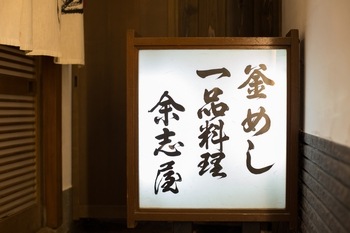 釜めし
一品料理
余志屋